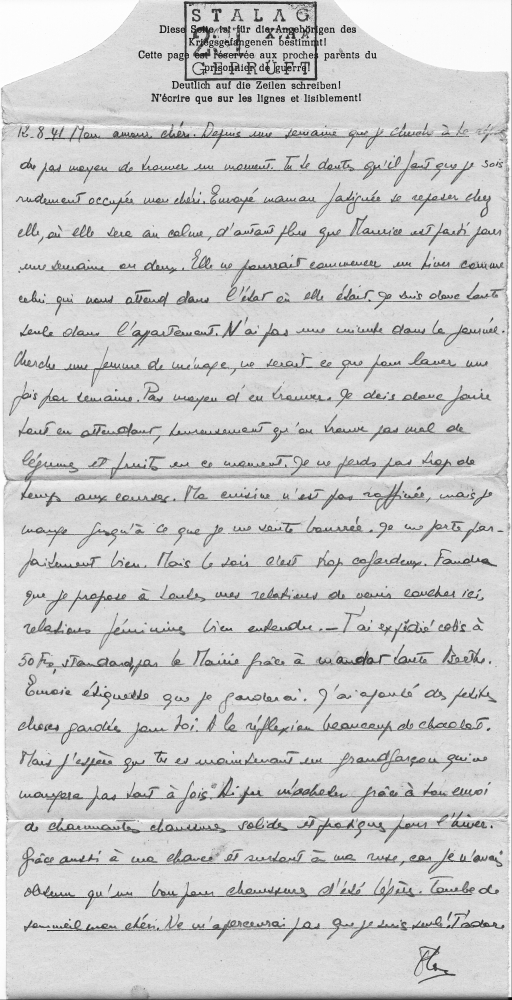 STALAG
XXA
GEPRÜFT
Diese Seite ist für die Angehörigen des
Kriegsgefangenen bestimmt!
Cette page est réservée aux proches parents du
prisonnier de guerre!
Deutlich auf die Zeilen schreiben!
N'écrire que sur les lignes et lisiblement!
12.8.41 Mon amour chéri. Depuis une semaine que je cherche à te répon
dre pas moyen de trouver un moment. Tu te doutes qu'il faut que je sois
rudement occupée mon chéri. Envoyé maman fatiguée se reposer chez
elle, où elle sera au calme, d'autant plus que Maurice est parti pour
une semaine ou deux. Elle ne pourrait commencer un hiver comme
celui qui nous attend dans l'état où elle était. Je suis donc toute
seule dans l'appartement. N'ai pas une minute dans la journée.
Cherche une femme de ménage, ne serait-ce que pour laver une
fois par semaine. Pas moyen d'en trouver. Je dois donc faire
tout en attendant, heureusement qu'on trouve pas mal de
légumes et fruits en ce moment. Je ne perds pas trop de
temps aux courses. Ma cuisine n'est pas raffinée, mais je
mange jusqu'à ce que je me sente bourrée. Je me porte par-
faitement bien. Mais le soir c'est trop cafardeux. Faudra
que je propose à toutes mes relations de venir coucher ici,
relations féminines bien entendu. — T'ai expédié colis à
50 Frs, standard, par la Mairie grâce à mandat tante Berthe.
Envoie étiquette que je garderai. J'ai ajouté des petites
choses gardées pour toi. A la réflexion beaucoup de chocolat.
Mais j'espère que tu es maintenant un grand garçon qui ne
mangera pas tout à la fois. Ai pu m'acheter grâce à ton envoi
de charmantes chaussures solides et pratiques pour l'hiver.
Grâce aussi à ma chance et surtout à ma ruse, car je n'avais
obtenu qu'un bon pour chaussures d'été légères. Tombe de
sommeil mon chéri. Ne m'apercevrai pas que je suis seule! T'adore